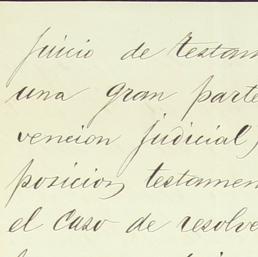 juicio de testam
una gran parte
vencion judicial,
posicion testamen
el caso de resolve